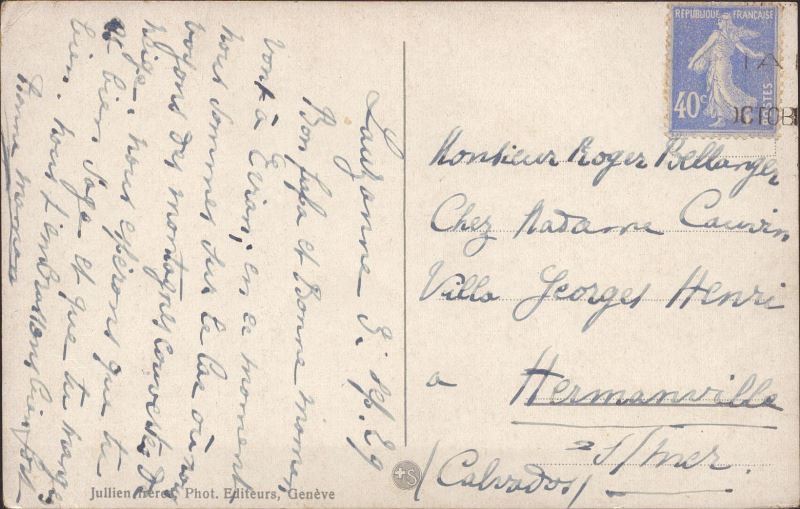 Lauzanne 8. 7bre 29
Bon papa et Bonne maman
vont à Evian, en ce moment
nous sommes sur le lac où nous
voyons des montagnes couvertes de
neige. nous espérons que tu
es bien sage et que tu mange
bien. nous t'embrassons bien fort
Bonne maman
REPUBLIQUE FRANÇAISE
40c
POSTES
OCTOB
Monsieur Roger Bellanger
Chez Madame Cauvin
Villa Georges Henri
a Hermanville
s/mer
(Calvados)
Jullien frères, Phot. Editeurs, Genève